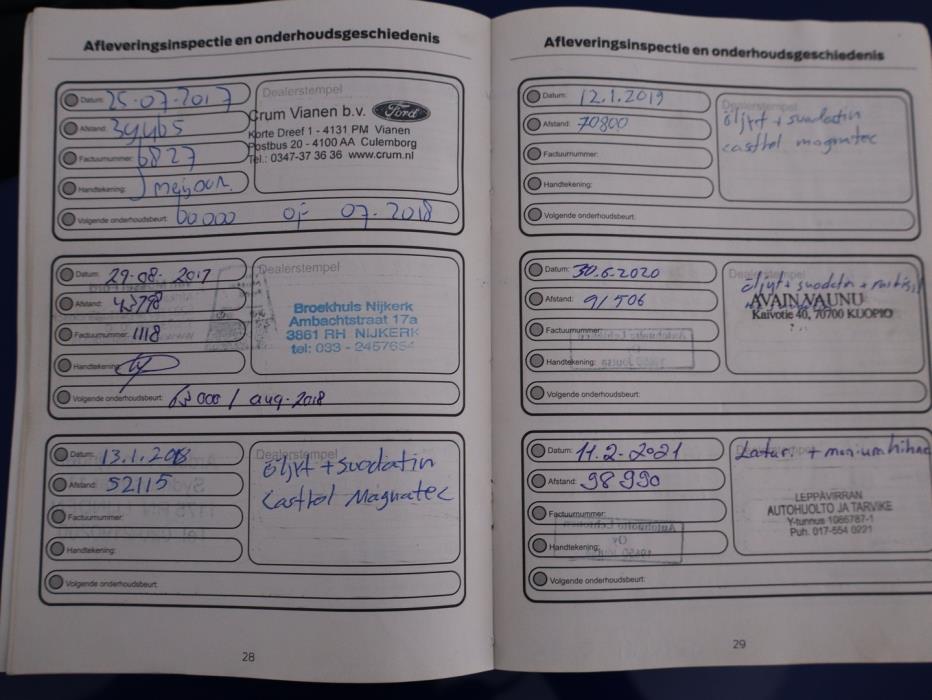 Afleveringsinspectie en onderhoudsgeschiedenis
Datum: 25-07-2017
Afstand: 39465
Factuurnummer: 6827
Handtekening:
Volgende onderhoudsbeurt: 60000 of 07-2018
Dealerstempel
Crum Vianen b.v. Ford
Korte Dreef 1 - 4131 PM Vianen
Postbus 20 - 4100 AA Culemborg
Tel.: 0347-37 36 36 www.crum.nl
Datum: 29-08-2017
Afstand: 42798
Factuurnummer: 1118
Handtekening:
Volgende onderhoudsbeurt: 63000 / aug-2018
Dealerstempel
Broekhuis Nijkerk
Ambachtstraat 17a
3861 RH NIJKERK
tel: 033 - 2457654
Datum: 13.1.2018
Afstand: 52115
Factuurnummer:
Handtekening:
Volgende onderhoudsbeurt:
Dealerstempel
öljyt + suodatin
Castrol Magnatec
28
Afleveringsinspectie en onderhoudsgeschiedenis
Datum: 12.1.2019
Afstand: 70800
Factuurnummer:
Handtekening:
Volgende onderhoudsbeurt:
Dealerstempel
öljyt + suodatin
castrol magnatec
Datum: 30.6.2020
Afstand: 91506
Factuurnummer:
Handtekening:
Volgende onderhoudsbeurt:
öljyt + suodatin +
AVAIN VAUNU
Kaivotie 40, 70700 KUOPIO
Datum: 11.2.2021
Afstand: 98990
Factuurnummer:
Handtekening:
Volgende onderhoudsbeurt:
Laturi + moniurahihna
LEPPÄVIRRAN
AUTOHUOLTO JA TARVIKE
Y-tunnus 1086787-1
Puh. 017-554 0221
29